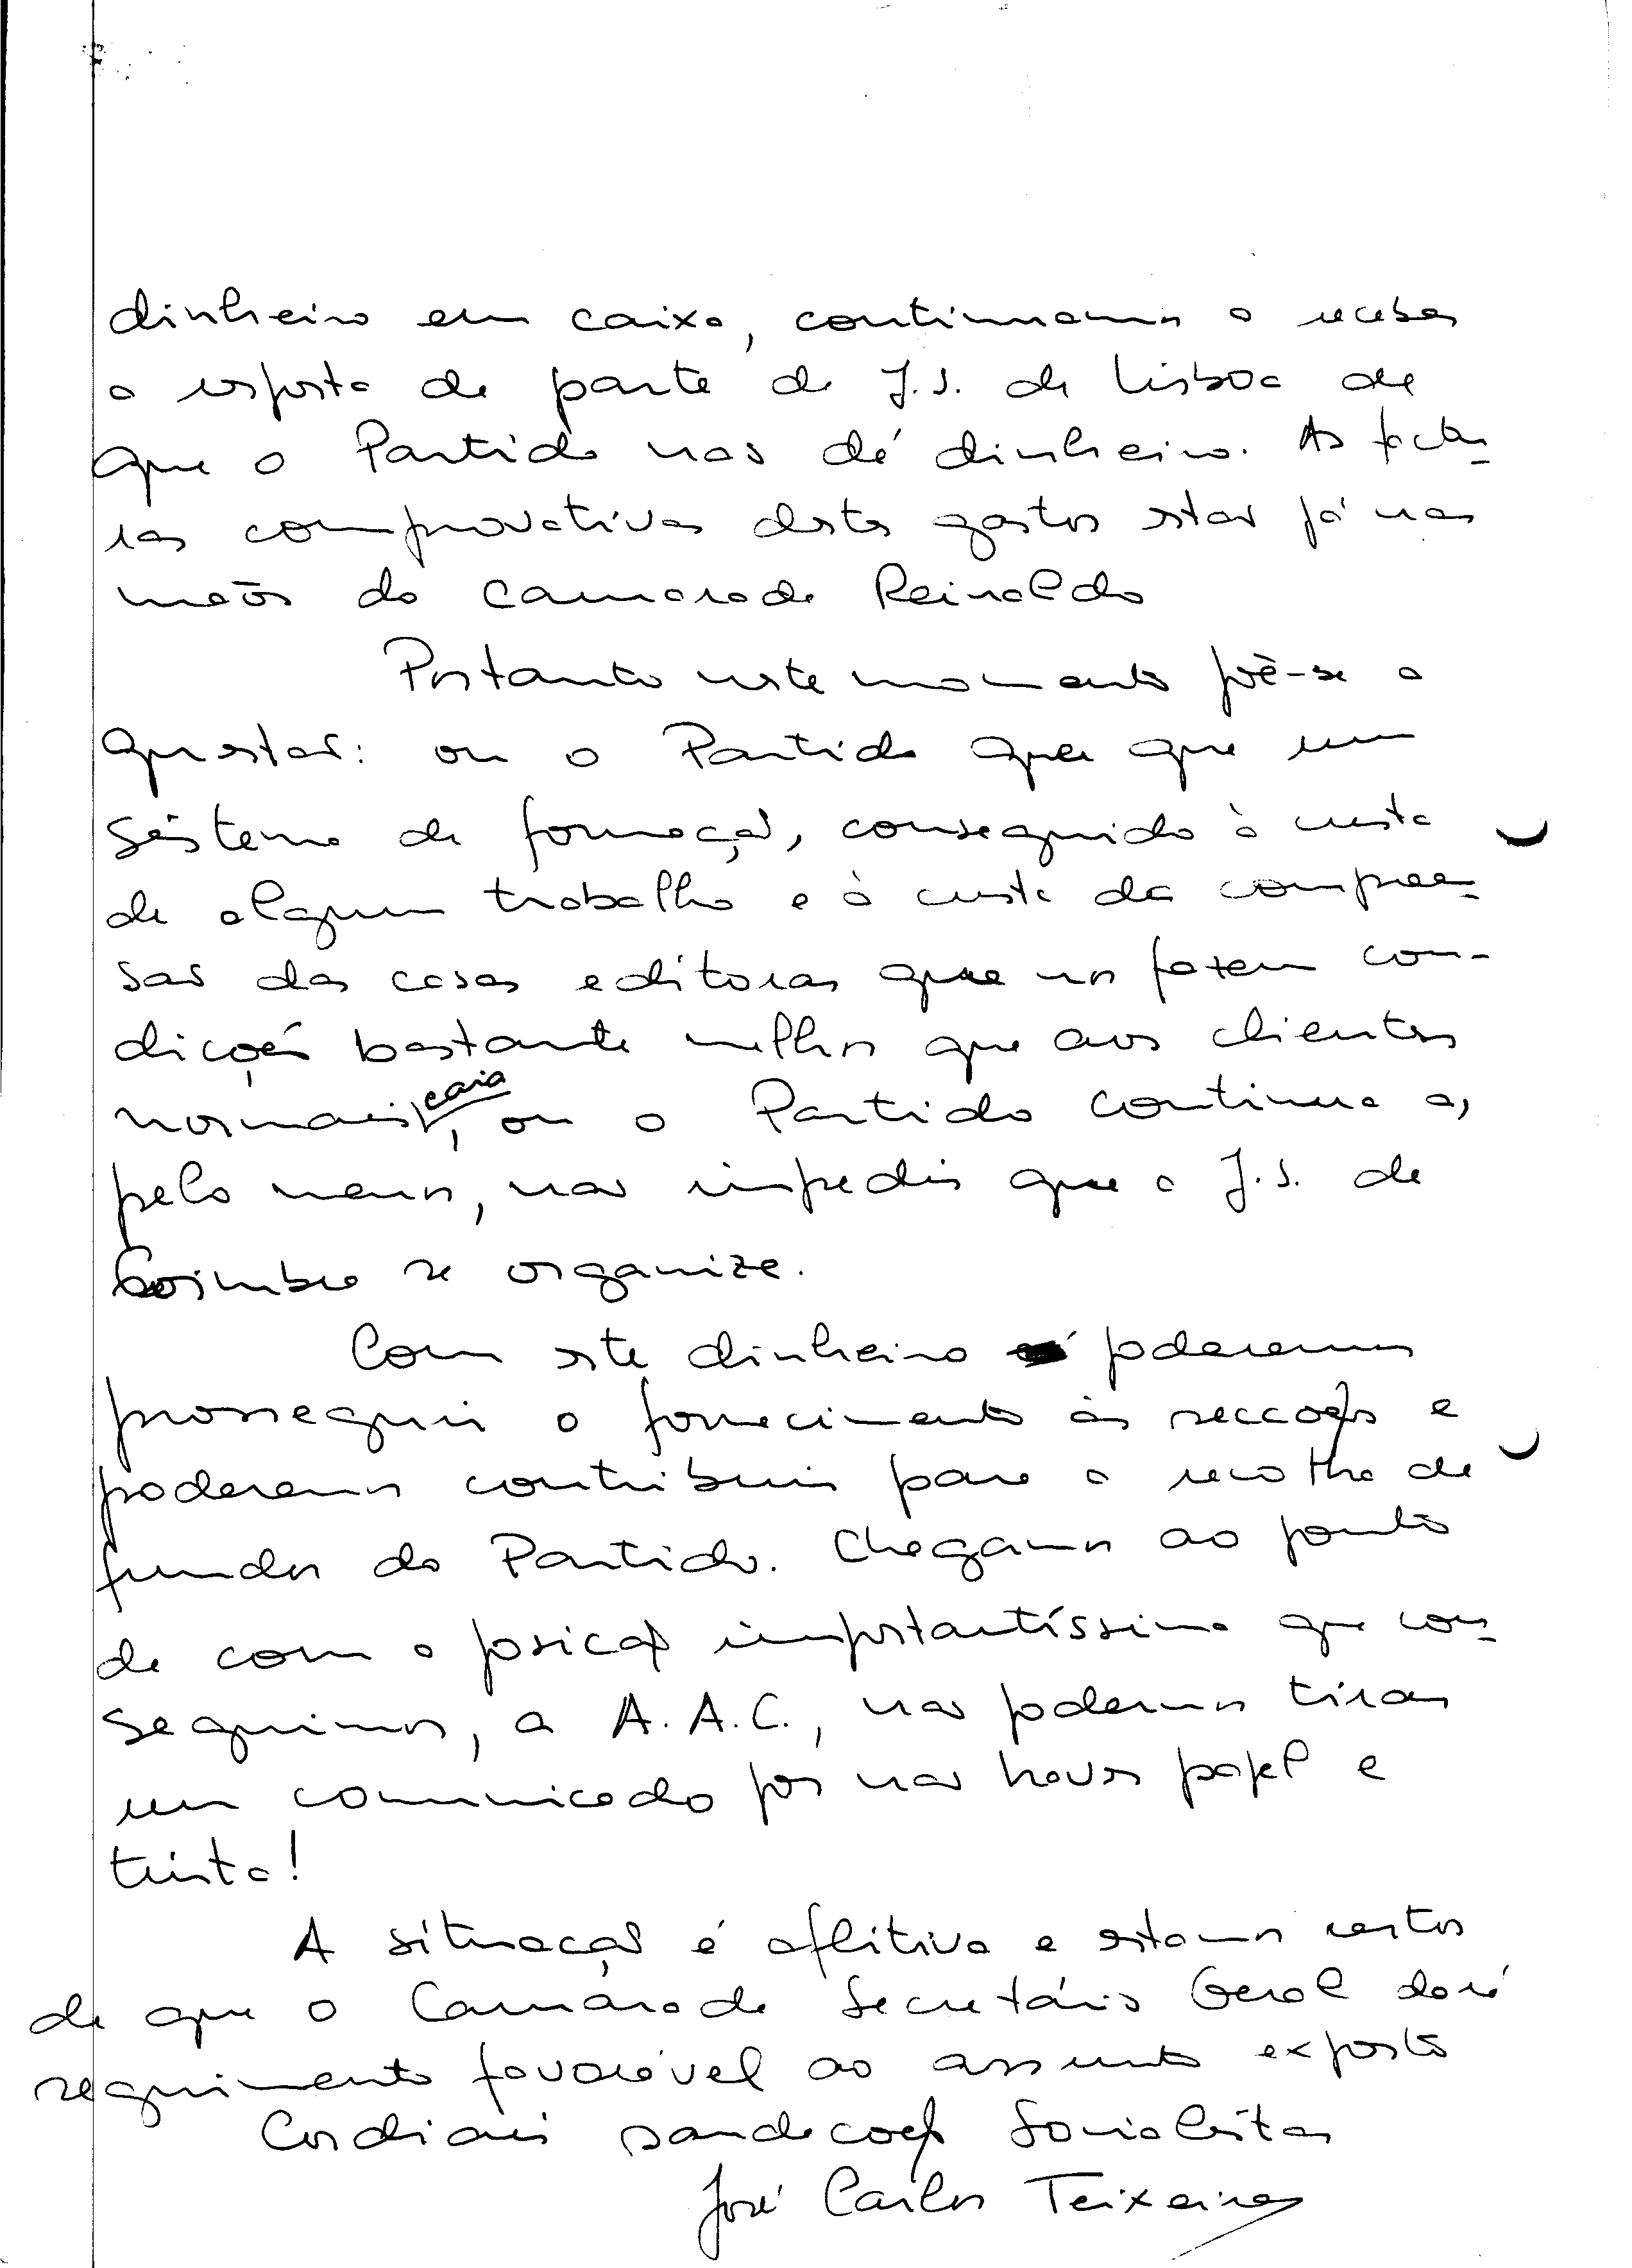 dinheiro em caixa, continuamos a receber
a resposta da parte da J.S. de Lisboa de
que o Partido não dá dinheiro. As factu-
ras comprovativas destes gastos estão já nas
mãos do camarada Reinaldo
Portanto neste momento põe-se a
questão: ou o Partido quer que um
sistema de formação, conseguido à custa
de algum trabalho e à custa da compreen-
são das casas editoras que nos fazem con-
dições bastante melhores que aos clientes
normais, caia, ou o Partido continua a,
pelo menos, não impedir que a J.S. de
Coimbra se organize.
Com este dinheiro poderemos
prosseguir o fornecimento às secções e
poderemos contribuir para a recolha de
fundos do Partido. Chegamos ao ponto
de com a posição importantíssima que con-
seguimos, a A.A.C., não podermos tirar
um comunicado por não haver papel e
tinta!
A situação é aflitiva e estamos certos
de que o Camarada Secretário Geral dará
seguimento favorável ao assunto exposto
Cordiais saudações Socialistas
José Carlos Teixeira